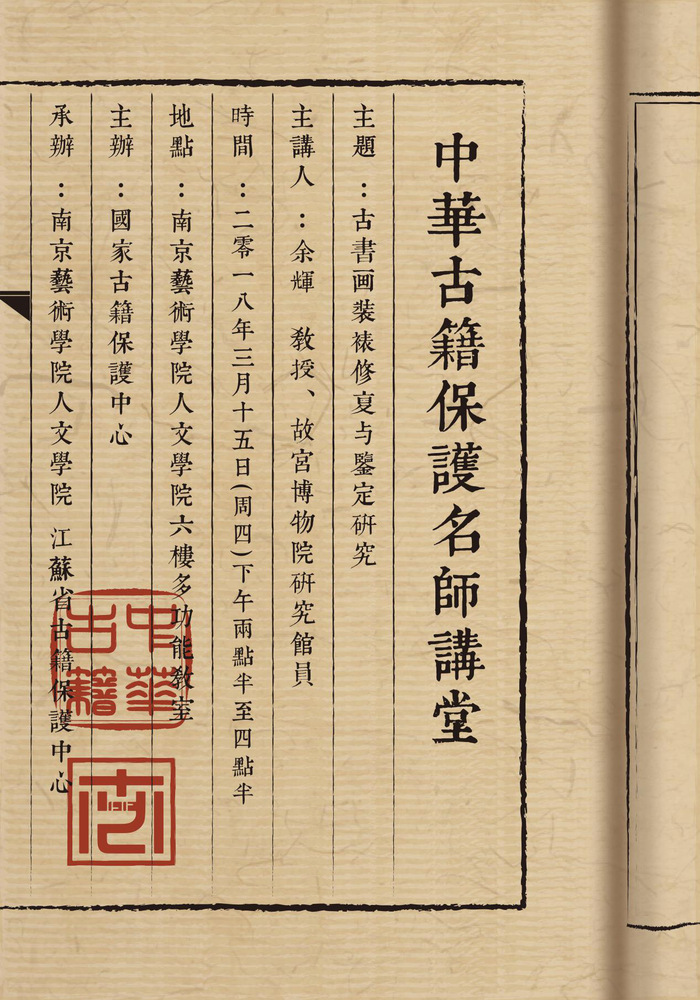 中華古籍保護名師講堂
主題：古書画装裱修复与鑒定研究
主講人：余輝 教授、故宮博物院研究館員
時間：二零一八年三月十五日(周四)下午兩點半至四點半
地點：南京藝術學院人文學院六樓多功能教室
主辦：國家古籍保護中心
承辦：南京藝術學院人文學院 江蘇省古籍保護中心
中華古籍
1912